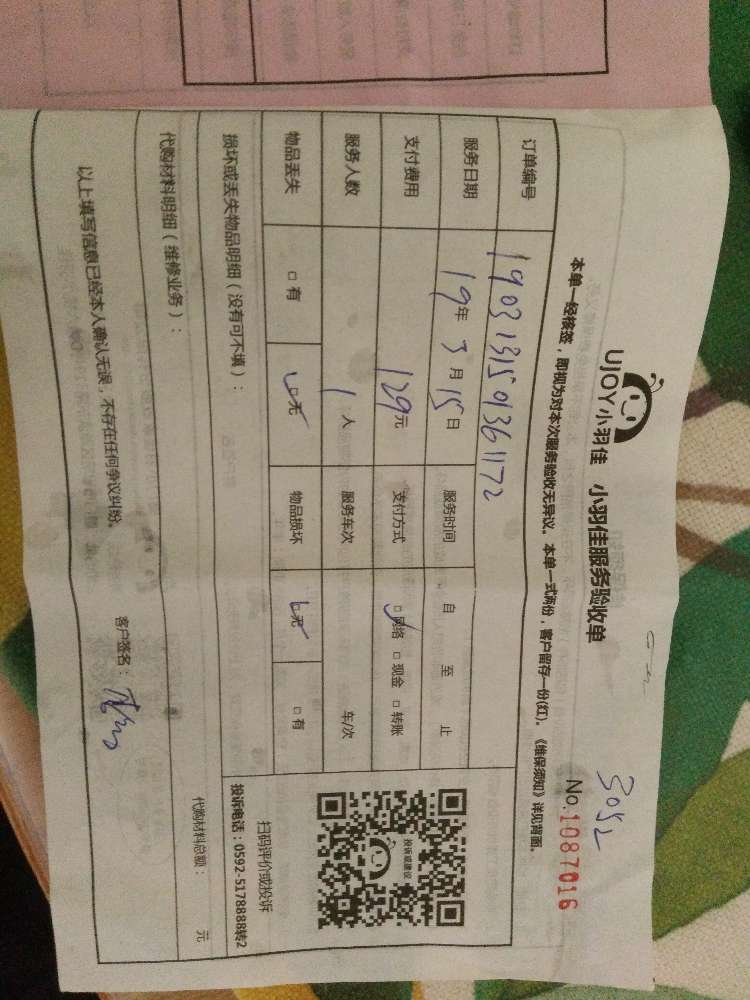 3052
UJOY小羽佳 小羽佳服务验收单
No.1087016
本单一经核签，即视为对本次服务验收无异议。本单一式两份，客户留存一份(红)。《维保须知》详见背面。
订单编号 1903131501361172
服务日期 19年3月15日 服务时间 自 至 止
支付费用 129元 支付方式 ☑网络 □现金 □转账
服务人数 1人 服务车次 车/次
物品丢失 □有 ☑无 物品损坏 ☑无 □有
投诉或建议
扫码评价或投诉
投诉电话：0592-5178888转2
损坏或丢失物品明细（没有可不填）：
代购材料明细（维修业务）： 代购材料总额： 元
以上填写信息已经本人确认无误，不存在任何争议纠纷。
客户签名：